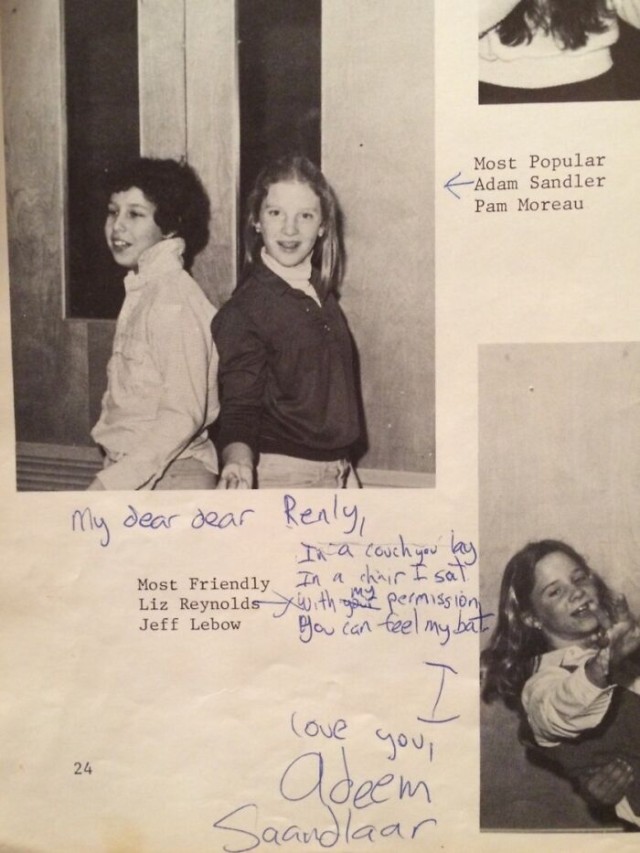 Most Popular
Adam Sandler
Pam Moreau
My dear dear Renly,
In a couch you lay
In a chair I sat
with my permission
You can feel my bat
Most Friendly
Liz Reynolds
Jeff Lebow
I
love you,
Adeem
Saandlaar
24